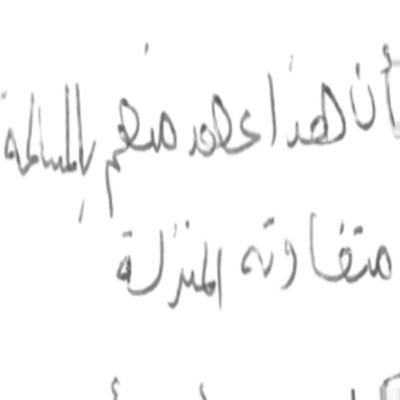 أن هذا عهد منهم بالمسالمة
متفاوتة المنزلة